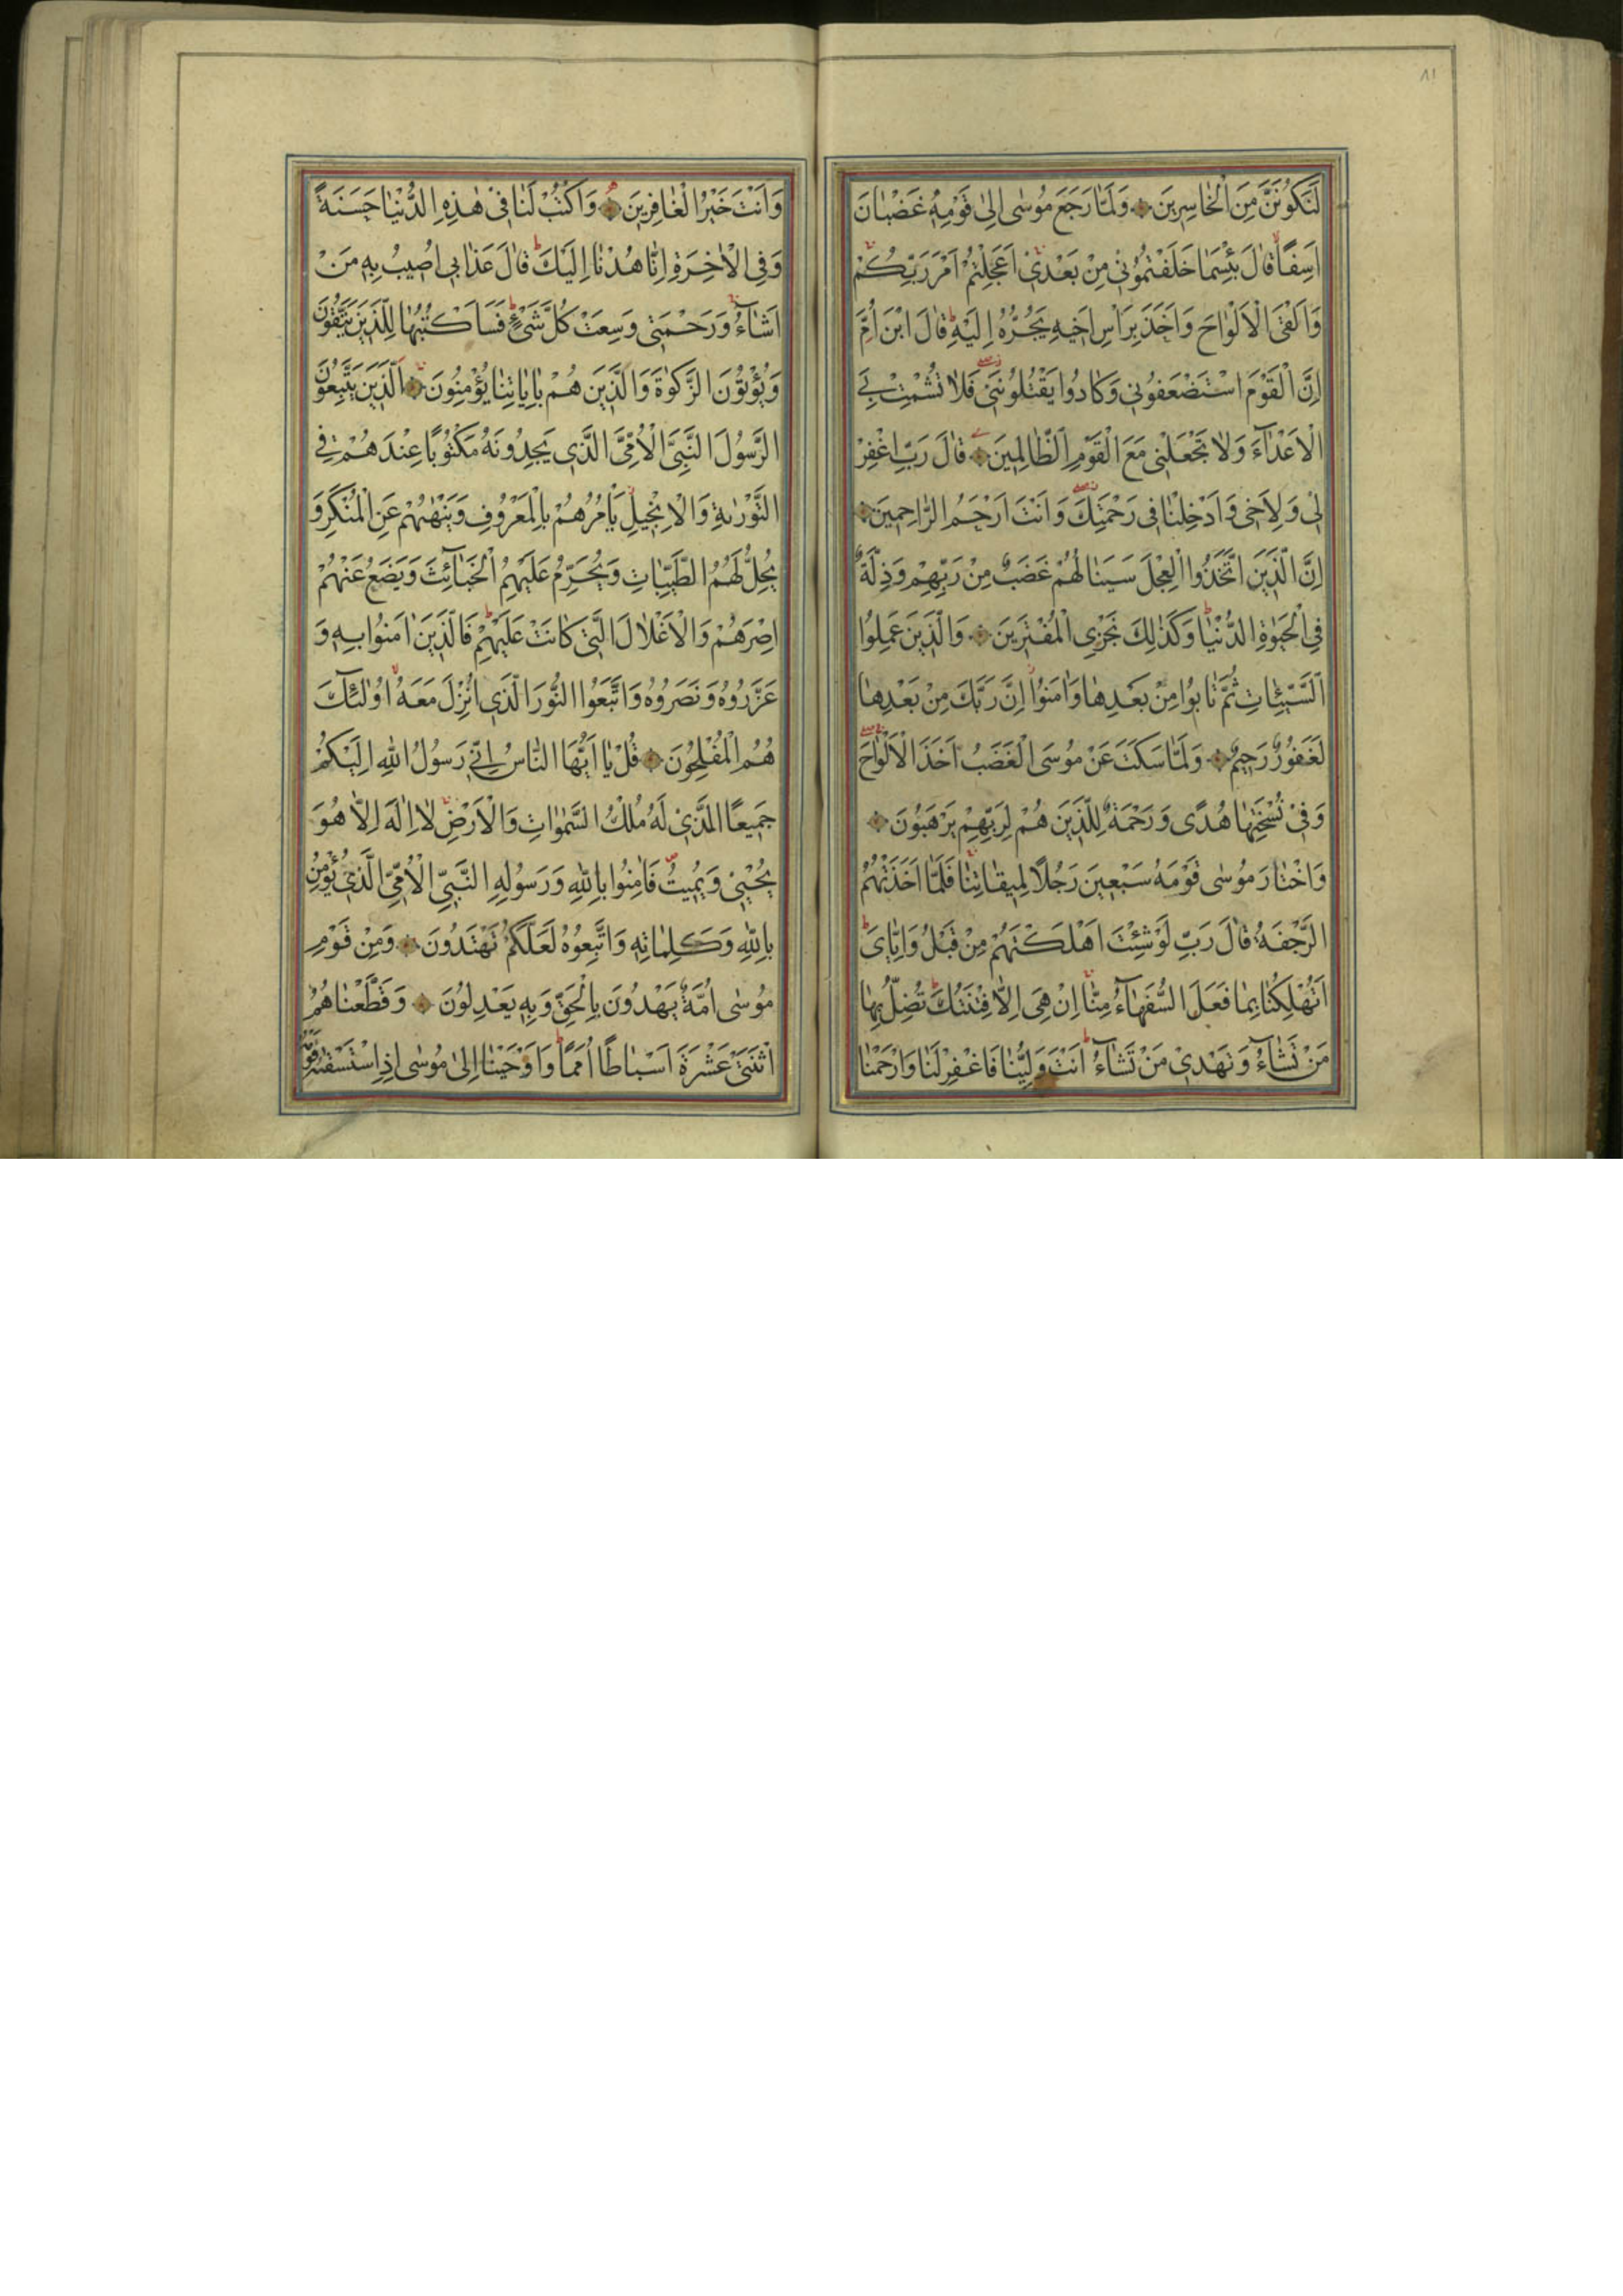 ٨١
لَنَكُونَنَّ مِنَ الْخَاسِرِينَ وَلَمَّا رَجَعَ مُوسٰى اِلٰى قَوْمِهٖ غَضْبَانَ
اَسِفًا قَالَ بِئْسَمَا خَلَفْتُمُونٖى مِنْ بَعْدٖى اَعَجِلْتُمْ اَمْرَ رَبِّكُمْ
وَاَلْقَى الْاَلْوَاحَ وَاَخَذَ بِرَاْسِ اَخٖيهِ يَجُرُّهُ اِلَيْهِ قَالَ ابْنَ اُمَّ
اِنَّ الْقَوْمَ اسْتَضْعَفُونٖى وَكَادُوا يَقْتُلُونَنٖى فَلَا تُشْمِتْ بِىَ
الْاَعْدَٓاءَ وَلَا تَجْعَلْنٖى مَعَ الْقَوْمِ الظَّالِمٖينَ قَالَ رَبِّ اغْفِرْ
لٖى وَلِاَخٖى وَاَدْخِلْنَا فٖى رَحْمَتِكَ وَاَنْتَ اَرْحَمُ الرَّاحِمٖينَ
اِنَّ الَّذٖينَ اتَّخَذُوا الْعِجْلَ سَيَنَالُهُمْ غَضَبٌ مِنْ رَبِّهِمْ وَذِلَّةٌ
فِى الْحَيٰوةِ الدُّنْيَا وَكَذٰلِكَ نَجْزِى الْمُفْتَرٖينَ وَالَّذٖينَ عَمِلُوا
السَّيِّئَاتِ ثُمَّ تَابُوا مِنْ بَعْدِهَا وَاٰمَنُوا اِنَّ رَبَّكَ مِنْ بَعْدِهَا
لَغَفُورٌ رَحٖيمٌ وَلَمَّا سَكَتَ عَنْ مُوسَى الْغَضَبُ اَخَذَ الْاَلْوَاحَ
وَفٖى نُسْخَتِهَا هُدًى وَرَحْمَةٌ لِلَّذٖينَ هُمْ لِرَبِّهِمْ يَرْهَبُونَ
وَاخْتَارَ مُوسٰى قَوْمَهُ سَبْعٖينَ رَجُلًا لِمٖيقَاتِنَا فَلَمَّا اَخَذَتْهُمُ
الرَّجْفَةُ قَالَ رَبِّ لَوْ شِئْتَ اَهْلَكْتَهُمْ مِنْ قَبْلُ وَاِيَّاىَ
اَتُهْلِكُنَا بِمَا فَعَلَ السُّفَهَٓاءُ مِنَّا اِنْ هِىَ اِلَّا فِتْنَتُكَ تُضِلُّ بِهَا
مَنْ تَشَٓاءُ وَتَهْدٖى مَنْ تَشَٓاءُ اَنْتَ وَلِيُّنَا فَاغْفِرْ لَنَا وَارْحَمْنَا
وَاَنْتَ خَيْرُ الْغَافِرٖينَ وَاكْتُبْ لَنَا فٖى هٰذِهِ الدُّنْيَا حَسَنَةً
وَفِى الْاٰخِرَةِ اِنَّا هُدْنَا اِلَيْكَ قَالَ عَذَابٖى اُصٖيبُ بِهٖ مَنْ
اَشَٓاءُ وَرَحْمَتٖى وَسِعَتْ كُلَّ شَىْءٍ فَسَاَكْتُبُهَا لِلَّذٖينَ يَتَّقُونَ
وَيُؤْتُونَ الزَّكٰوةَ وَالَّذٖينَ هُمْ بِاٰيَاتِنَا يُؤْمِنُونَ اَلَّذٖينَ يَتَّبِعُونَ
الرَّسُولَ النَّبِىَّ الْاُمِّىَّ الَّذٖى يَجِدُونَهُ مَكْتُوبًا عِنْدَهُمْ فِى
التَّوْرٰيةِ وَالْاِنْجٖيلِ يَاْمُرُهُمْ بِالْمَعْرُوفِ وَيَنْهٰيهُمْ عَنِ الْمُنْكَرِ وَ
يُحِلُّ لَهُمُ الطَّيِّبَاتِ وَيُحَرِّمُ عَلَيْهِمُ الْخَبَٓائِثَ وَيَضَعُ عَنْهُمْ
اِصْرَهُمْ وَالْاَغْلَالَ الَّتٖى كَانَتْ عَلَيْهِمْ فَالَّذٖينَ اٰمَنُوا بِهٖ وَ
عَزَّرُوهُ وَنَصَرُوهُ وَاتَّبَعُوا النُّورَ الَّذٖى اُنْزِلَ مَعَهُ اُولٰٓئِكَ
هُمُ الْمُفْلِحُونَ قُلْ يَا اَيُّهَا النَّاسُ اِنّٖى رَسُولُ اللّٰهِ اِلَيْكُمْ
جَمٖيعًا الَّذٖى لَهُ مُلْكُ السَّمٰوَاتِ وَالْاَرْضِ لَا اِلٰهَ اِلَّا هُوَ
يُحْيٖى وَيُمٖيتُ فَاٰمِنُوا بِاللّٰهِ وَرَسُولِهِ النَّبِىِّ الْاُمِّىِّ الَّذٖى يُؤْمِنُ
بِاللّٰهِ وَكَلِمَاتِهٖ وَاتَّبِعُوهُ لَعَلَّكُمْ تَهْتَدُونَ وَمِنْ قَوْمِ
مُوسٰى اُمَّةٌ يَهْدُونَ بِالْحَقِّ وَبِهٖ يَعْدِلُونَ وَقَطَّعْنَاهُمُ
اثْنَتَىْ عَشْرَةَ اَسْبَاطًا اُمَمًا وَاَوْحَيْنَا اِلٰى مُوسٰى اِذِ اسْتَسْقٰيهُ قَوْمُهُ